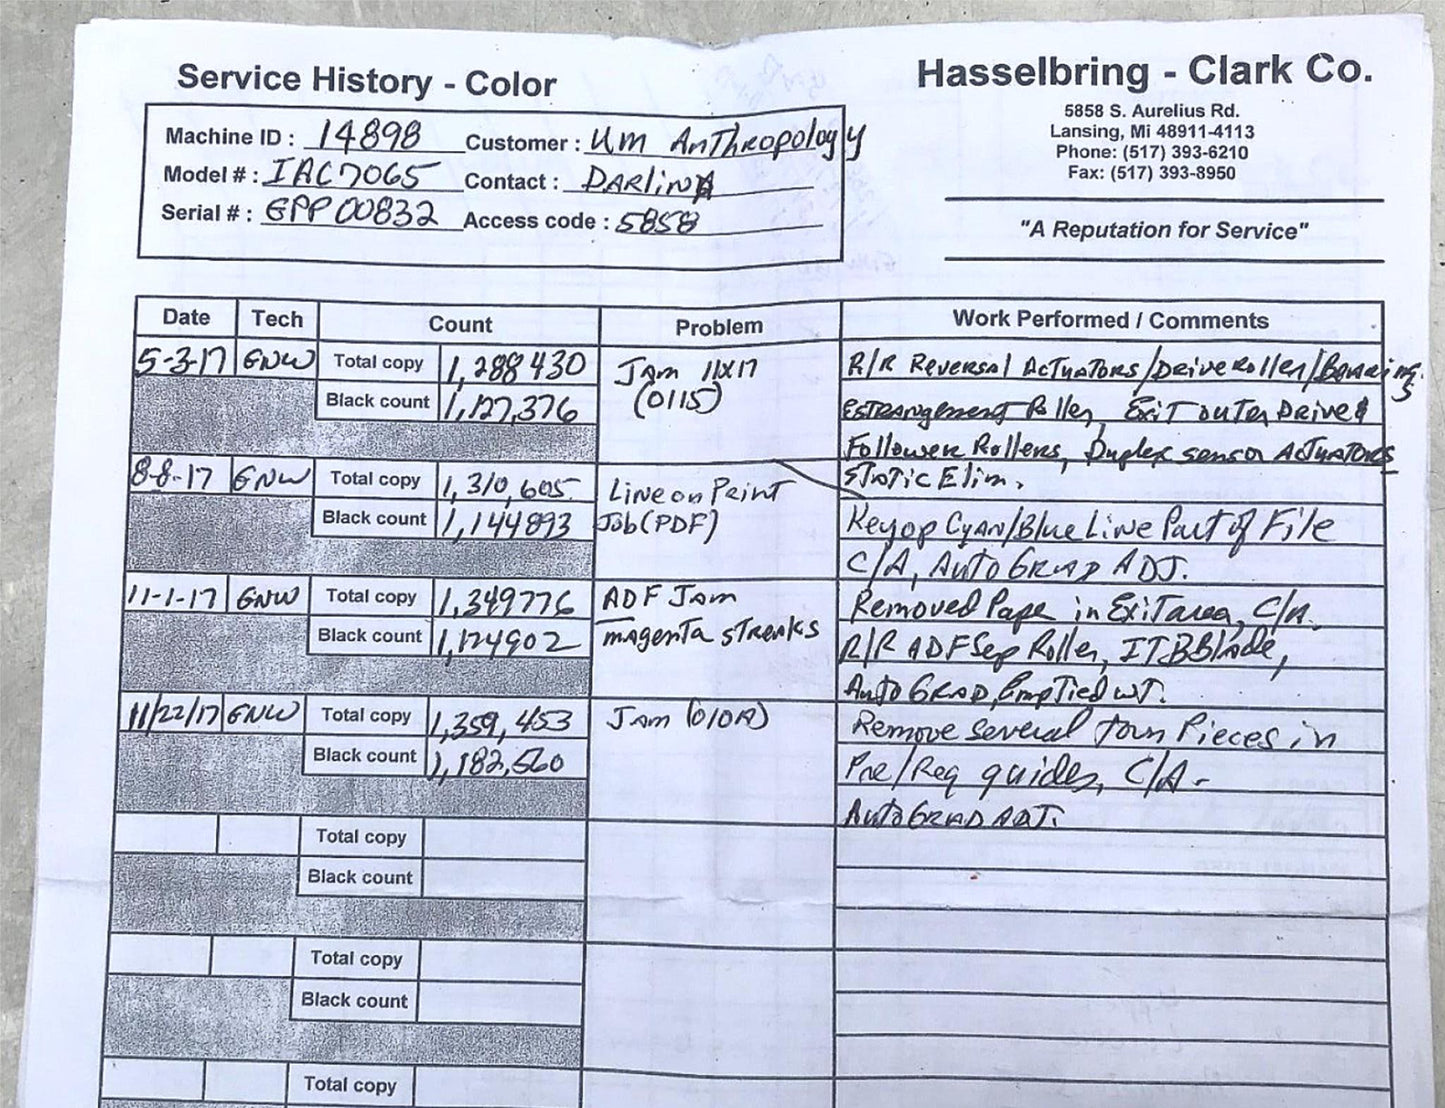 Service History - Color
Hasselbring - Clark Co.
5858 S. Aurelius Rd.
Lansing, Mi 48911-4113
Phone: (517) 393-6210
Fax: (517) 393-8950
"A Reputation for Service"
Machine ID : 14898 Customer : UM Anthropology
Model # : IAC7065 Contact : DARlinA
Serial # : GPP00832 Access code : 5858
Date Tech Count Problem Work Performed / Comments
5-3-17 GNW Total copy 1,288430 JAm 11x17 R/R Reversal Actuators/Drive Roller/Bearings
Black count 1,127,376 (0115) Estrangement Roller, Exit outer Drive &
Follower Rollers, Duplex sensor Actuators
8-8-17 GNW Total copy 1,310,605 Line on Print Static Elim.
Black count 1,144893 Job (PDF) Keyop Cyan/Blue Line Part of File
C/A, Auto GRAD ADJ.
11-1-17 GNW Total copy 1,349776 ADF JAm Removed Pape in Exit area, C/A.
Black count 1,124902 magenta streaks R/R ADF Sep Roller, ITB Blade,
Auto GRAD, Emptied WT.
11/22/17 GNW Total copy 1,359,453 JAm (010A) Remove several torn Pieces in
Black count 1,182,560 Pre/Reg guides, C/A-
Auto GRAD ADJ.
Total copy
Black count
Total copy
Black count
Total copy